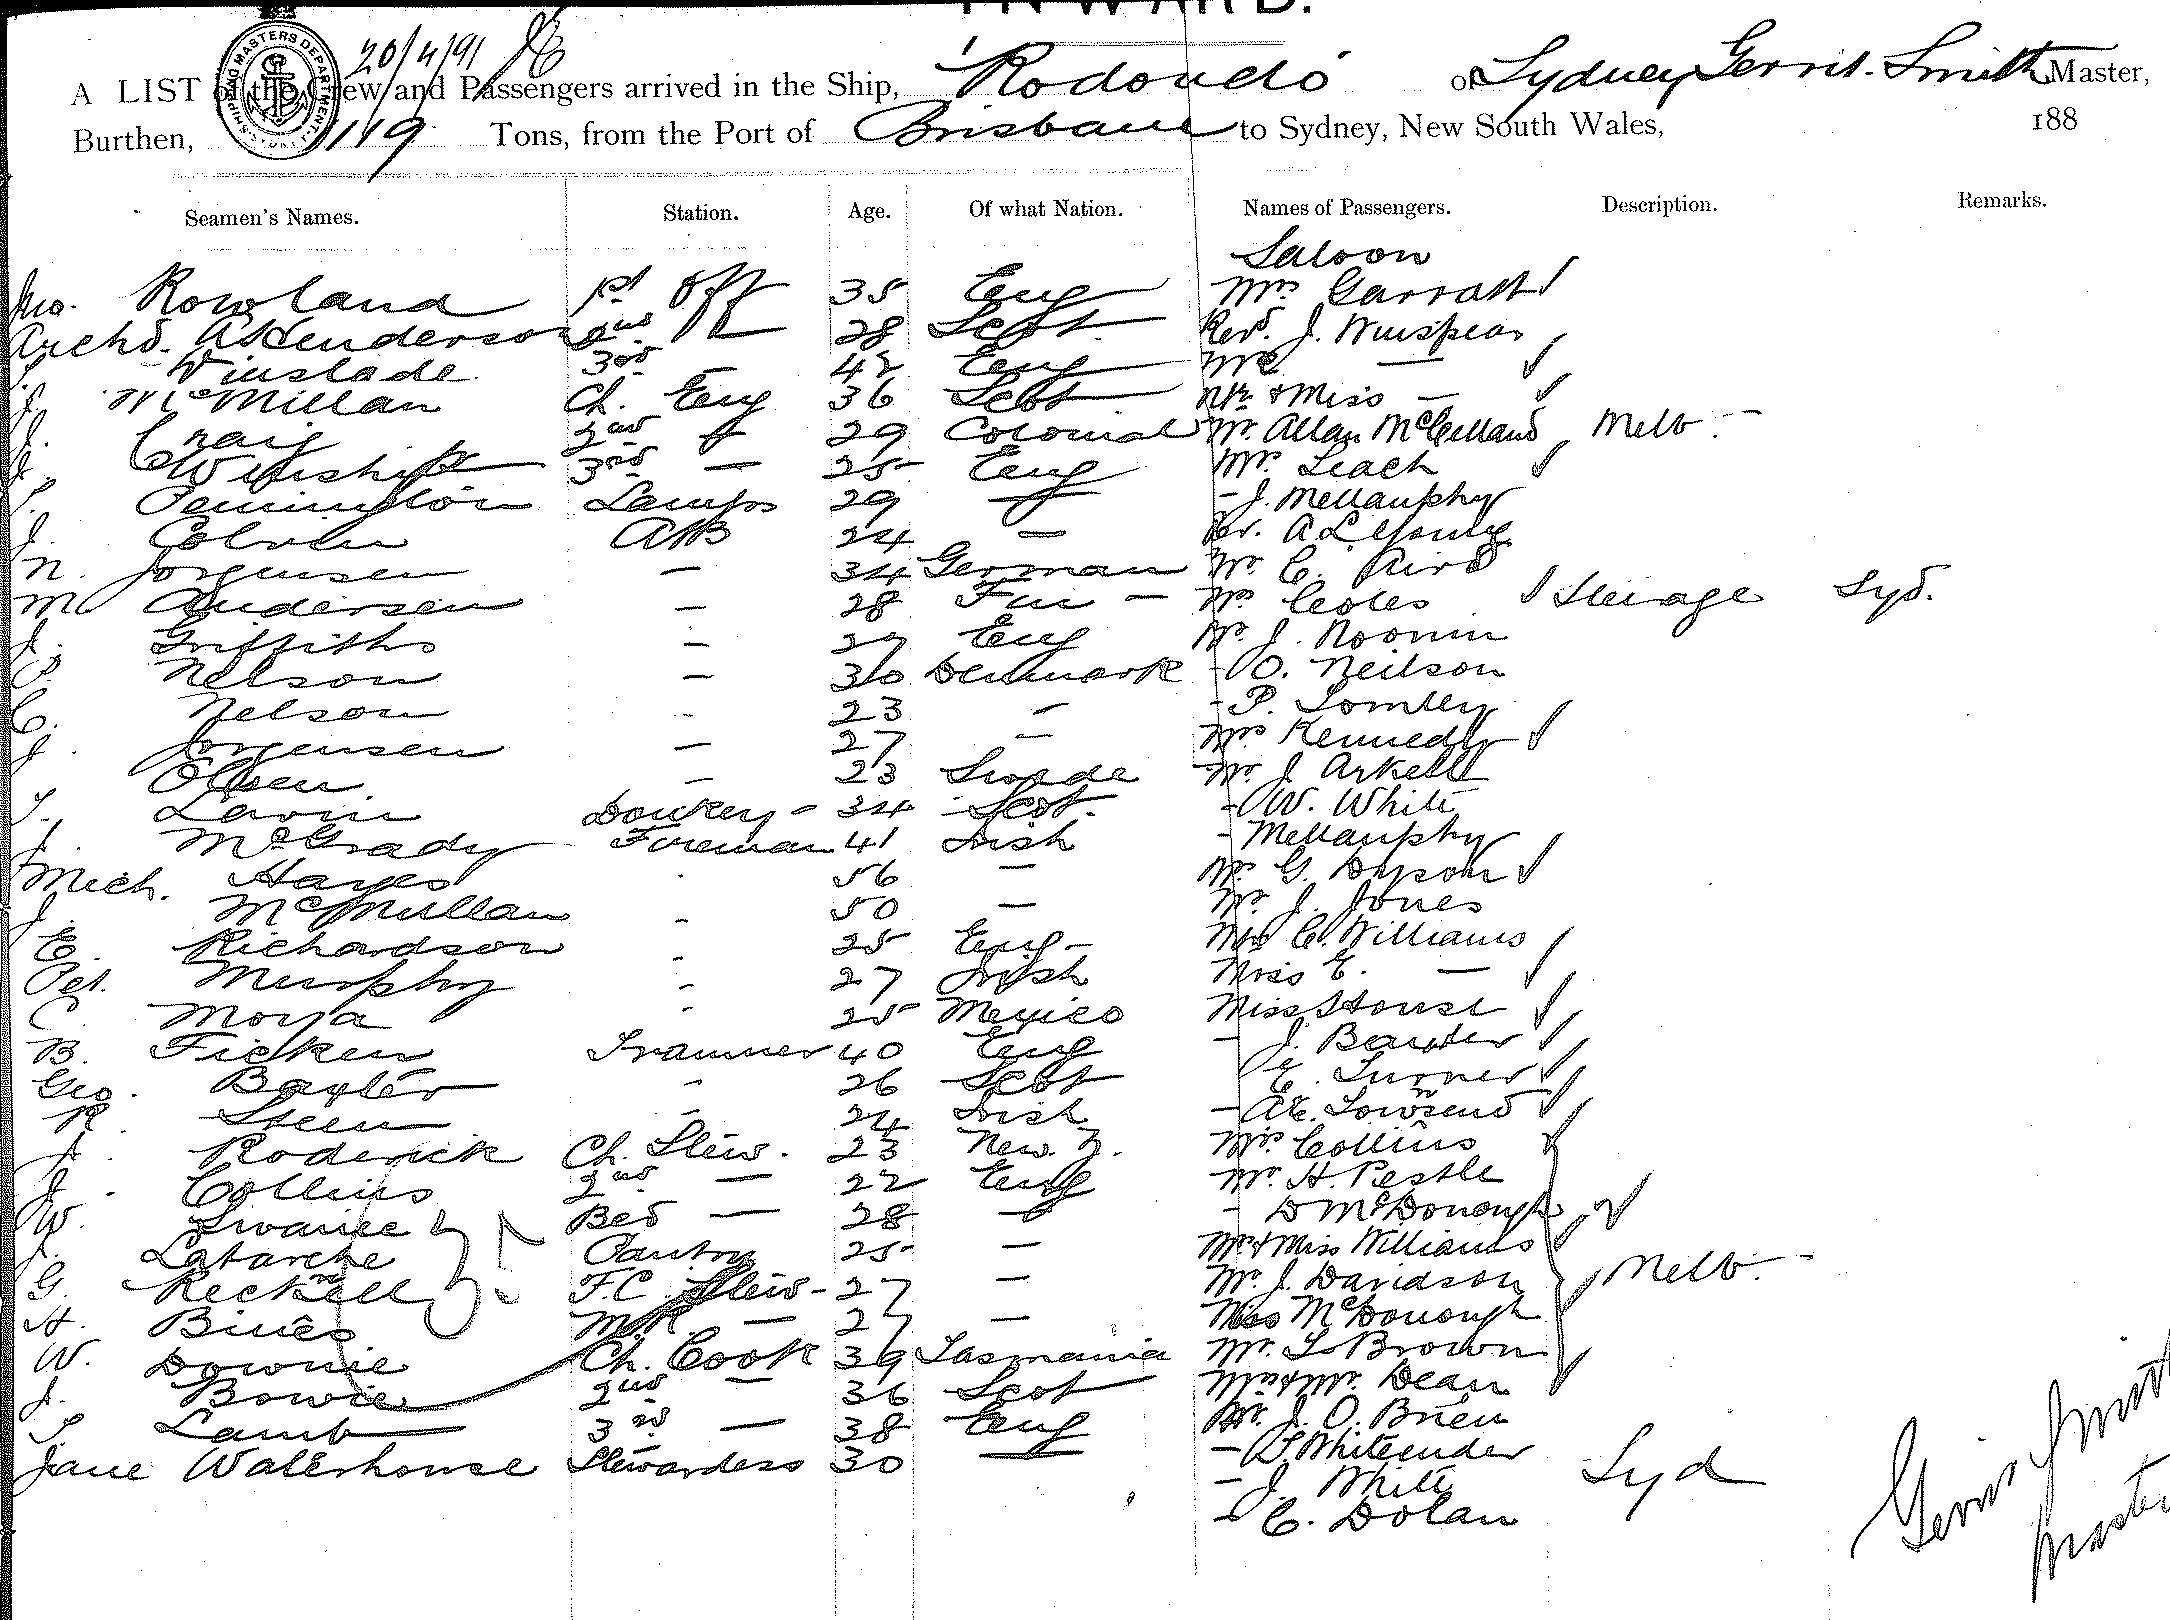 INWARD.
20/4/91
SHIPPING MASTERS DEPARTMENT SYDNEY
A LIST of the Crew and Passengers arrived in the Ship, "Rodondo" of Sydney Gerrit. Smith Master,
Burthen, 1119 Tons, from the Port of Brisbane to Sydney, New South Wales, 188
Seamen's Names. Station. Age. Of what Nation. Names of Passengers. Description. Remarks.
Saloon
Jno. Rowland 1st Off 35 Eng Mrs Garratt
Archd. A Henderson 2nd 28 Scot Revd. J. Winspear
Winslade 3rd 42 Eng Mrs —
J. McMillan Ch. Eng 36 Scot Mr & Miss —
J. Craig 2nd 29 Colonial Mr. Allan McClelland Melb.
3rd — 25 Eng Mr Leach
Pennington Lamps 29 — - J. Mellamphy
J. AB 24 — Rev. A L Young
N. Jorgensen — 34 German Mr C. Bird
M Andersen — 28 Fin — Mrs Coles Steerage Syd.
J. Griffiths — 27 Eng Mr. J. Noonan
P. Nelson — 30 Denmark - O. Neilson
C. Nelson - 23 - - P.
J. Jorgensen — 27 — Mrs Kennedy
Olsen — 23 Swede Mr J Arkell
Lavin Donkey - 34 Scot. - W. White
McGrady Fireman 41 Irish - Mellamphy
Mich. Hayes 56 — Mr. G. Dyson
J. McMullan - 50 — Mr J. Jones
E. Richardson - 25 Eng - Mrs C. Williams
Pet. Murphy - 27 Irish Miss E. —
C. Moya - 25 Mexico Miss House
B. Ficken Trimmer 40 Eng - J. Baxter
Geo. Baxter - 26 Scot E. Turner
R Steen - 24 Irish - AE. Townsend
J. Roderick Ch. Stew. 23 New. Z. Mrs Collins
J. Collins 2nd — 22 Eng Mr. H. Pestle
W. Swanee Bed — 28 — - D McDonough
Latarche Pantry 25 — Mr & Miss Williams
G. F.C. Stew - 27 — Mr. J. Davidson Melb.
H. Bines M.R — 27 — Miss McDonough
W. Downie Ch. Cook 39 Tasmania Mr. L Brown
J. Bowie 2nd — 36 Scot Mrs & Mr. Dean
Lamb 3rd — 38 Eng Mr. J. O. Brien
Jane Waterhouse Stewardess 30 — -
- J. White Syd
- C. Dolan
Gerrit Smith
Master